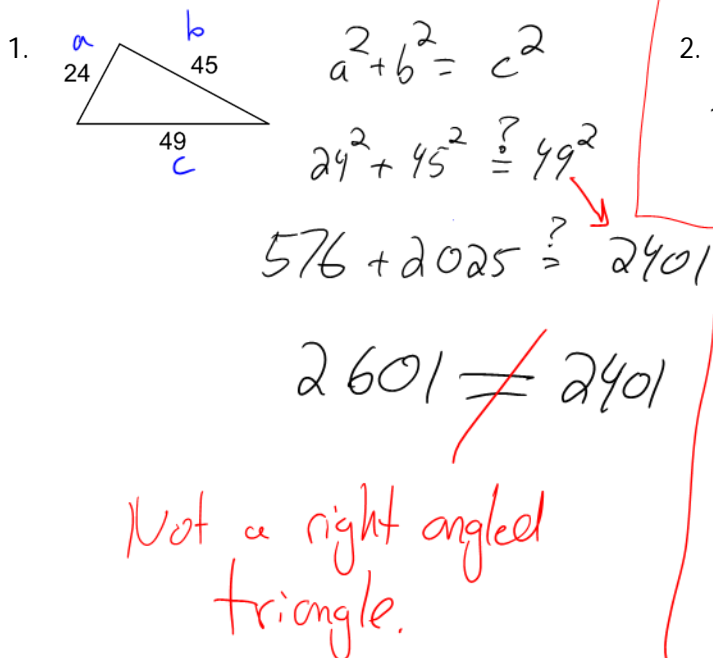 1.
a
b
24
45
49
c
a²+b²= c²
2.
24² + 45² ?= 49²
576 + 2025 ?= 2401
2601 ≠ 2401
Not a right angled
triangle.